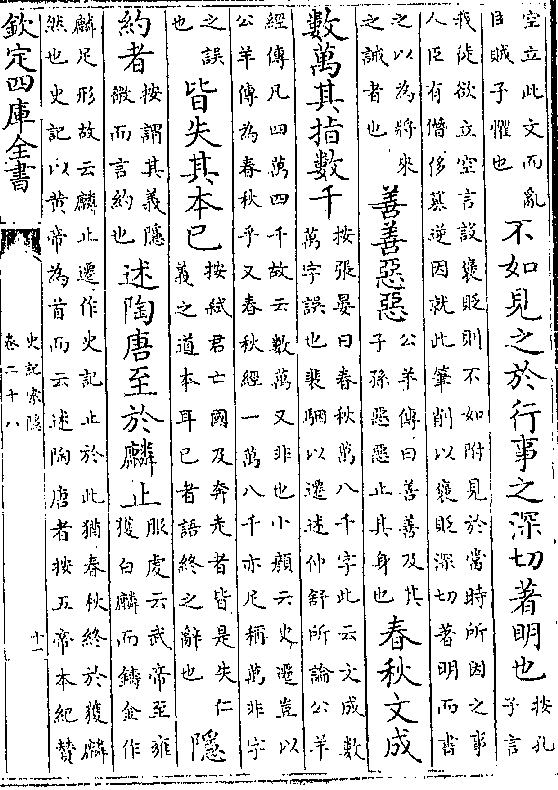 空立此文而亂
臣賊子懼也
不如見之於行事之深切著明也
按孔
子言
我徒欲立空言設褒貶則不如附見於當時所因之事
人臣有僭侈簒逆因就此筆削以褒貶深切著明而書
之以為將來
之誡者也
善善惡惡
公羊傳曰善善及其
子孫惡惡止其身也
春秋文成
數萬其指數千
按張晏曰春秋萬八千字此云文成數
萬字誤也裴駰以遷述仲舒所論公羊
經傳凡四萬四千故云數萬又非也小顔云史遷豈以
公羊傳為春秋乎又春秋經一萬八千亦足稱萬非字
之誤
也
皆失其本已
按弑君亡國及奔走者皆是失仁
義之道本耳已者語終之辭也
隱
約者
按謂其義隱
微而言約也
述陶唐至於麟止
服虔云武帝至雍
獲白麟而鑄金作
麟足形故云麟止遷作史記止於此猶春秋終於獲麟
然也史記以黄帝為首而云述陶唐者按五帝本紀贊
欽定四庫全書
史記索隱
卷二十八
十一